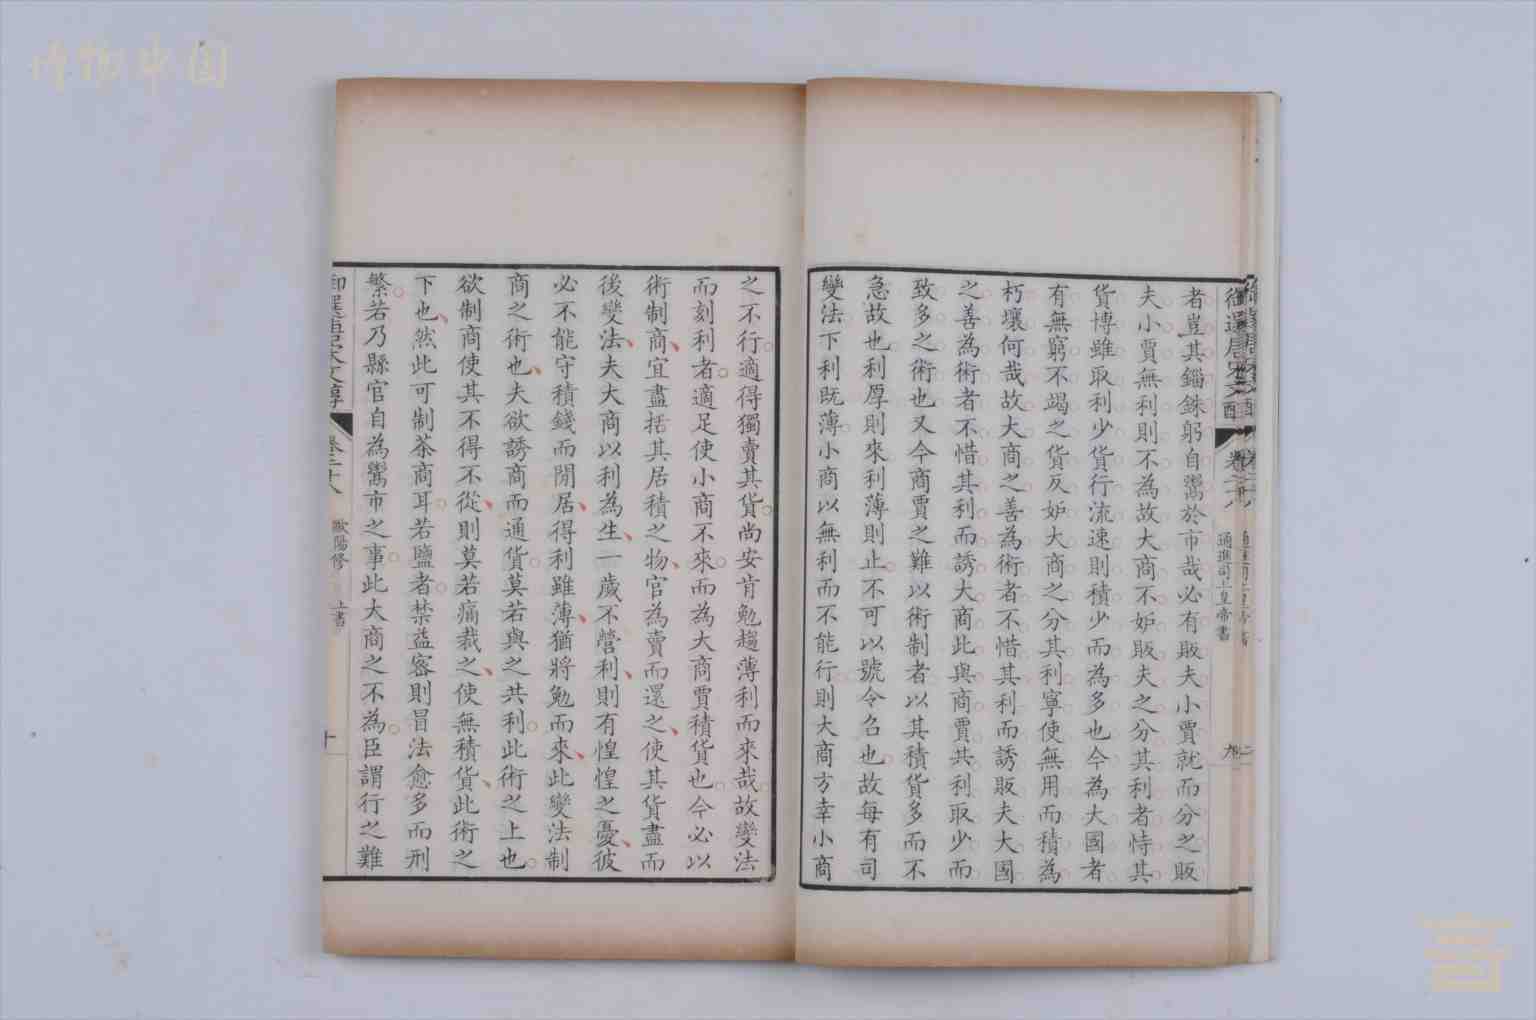 博物中国
御選唐宋文醇
卷二十八
通進司上皇帝書
九
者豈其錙銖躬自鬻於市哉必有販夫小賈就而分之販
夫小賈無利則不為故大商不妒販夫之分其利者恃其
貨博雖取利少貨行流速則積少而為多也今為大國者
有無窮不竭之貨反妒大商之分其利寧使無用而積為
朽壞何哉故大商之善為術者不惜其利而誘販夫大國
之善為術者不惜其利而誘大商此與商賈共利取少而
致多之術也又今商賈之難以術制者以其積貨多而不
急故也利厚則來利薄則止不可以號令召也故每有司
變法下利既薄小商以無利而不能行則大商方幸小商
之不行適得獨賣其貨尚安肯勉趨薄利而來哉故變法
而刻利者適足使小商不來而為大商賈積貨也今必以
術制商宜盡括其居積之物官為賣而還之使其貨盡而
後變法夫大商以利為生一歲不營利則有惶惶之憂彼
必不能守積錢而閒居得利雖薄猶將勉而來此變法制
商之術也夫欲誘商而通貨莫若與之共利此術之上也
欲制商使其不得不從則莫若痛裁之使無積貨此術之
下也然此可制茶商耳若鹽者禁益密則冒法愈多而刑
繁若乃縣官自為鬻市之事此大商之不為臣謂行之難
御選唐宋文醇
卷二十八
歐陽修
上書
十